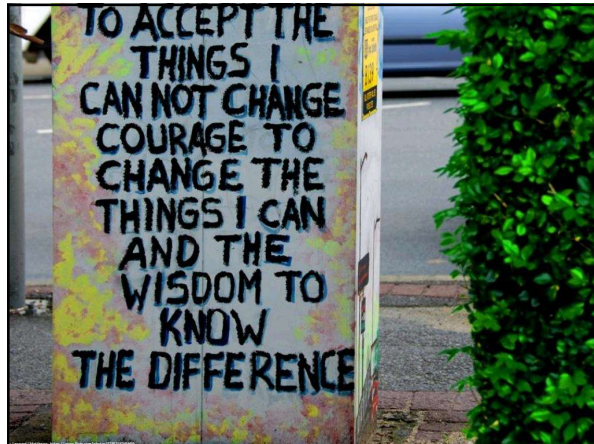 TO ACCEPT THE
THINGS I
CAN NOT CHANGE
COURAGE TO
CHANGE THE
THINGS I CAN
AND THE
WISDOM TO
KNOW
THE DIFFERENCE